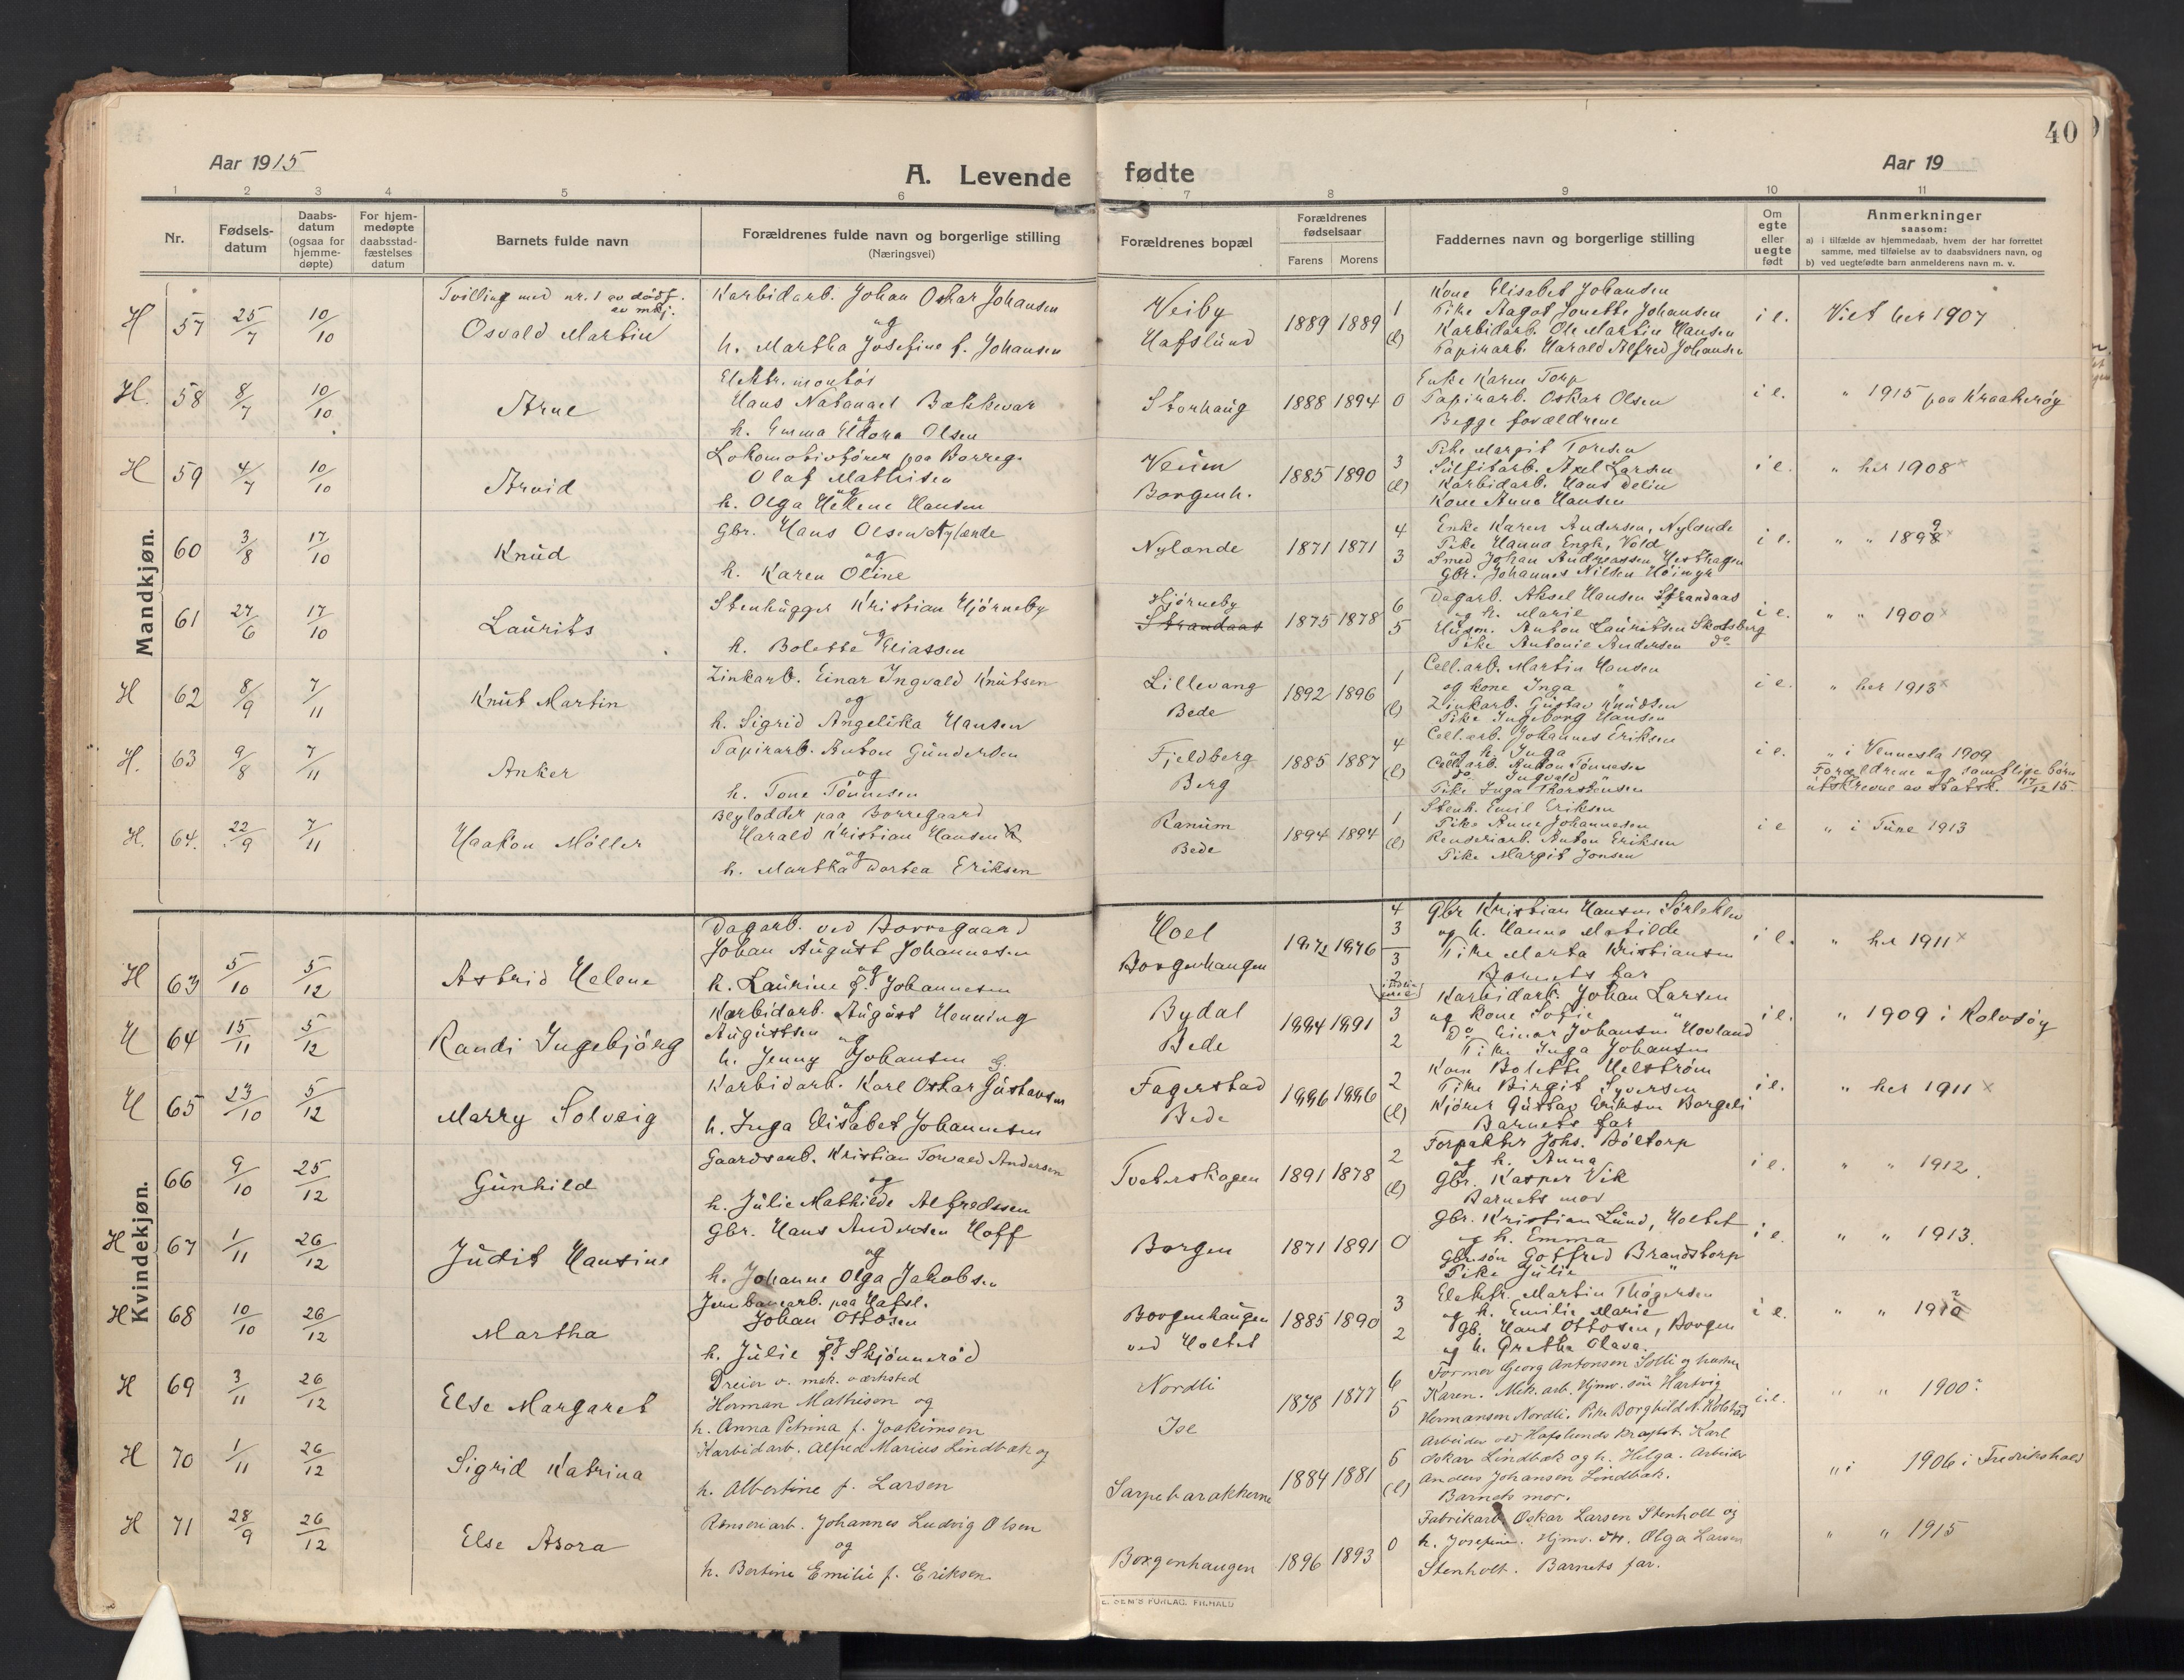 40
Aar 1915
A. Levende fødte
Aar 19
1 2 3 4 5 6 7 8 9 10 11
Nr.
Fødsels-
datum
Daabs-
datum
(ogsaa for
hjemme-
døpte)
For hjem-
medøpte
daabsstad-
fæstelses
datum
Barnets fulde navn
Forældrenes fulde navn og borgerlige stilling
(Næringsvei)
Forældrenes bopæl
Forældrenes
fødselsaar
Farens Morens
Faddernes navn og borgerlige stilling
Om
egte
eller
uegte
født
Anmerkninger
saasom:
a) i tilfælde av hjemmedaab, hvem der har forrettet
samme, med tilføielse av to daabsvidners navn, og
b) ved uegtefødte barn anmelderens navn m. v.
Mandkjøn.
H 57 25/7 10/10
Tvilling med nr. 1 av dødf.
av mkj.
Osvald Martin
Karbidarb. Johan Oskar Johansen
og
h. Martha Josefine f. Johansen
Veiby
Hafslund
1889 1889
1
(l)
Kone Elisabet Johansen
Pike Aagot Jonette Johansen
Karbidarb. Ole Martin Hansen
Papirarb. Harald Alfred Johansen
i e.
Viet her 1907
H. 58 8/7 10/10
Arne
Elektr. montør
Hans Natanael Bækkevar
og
h. Emma Eldora Olsen
Storhaug
1888 1894 0
Enke Karen Torp
Papirarb. Oskar Olsen
Begge forældrene
i e.
" 1915 paa Kraakerøy
H 59 4/7 10/10
Arvid
Lokomotivfører paa Borreg.
Olaf Mathisen
og
h. Olga Helene Hansen
Veum
Borgenh.
1885 1890
3
(l)
Pike Margit Toresen
Sulfitarb. Axel Larsen
Karbidarb. Hans Delin
Kone Anna Hansen
i e.
" her 1908 x
60 3/8 17/10
Knud
Gbr. Hans Olsen Nylænde
og
h. Karen Oline
Nylænde
1871 1871
4
3
Enke Karen Andersen, Nylænde
Pike Hanna Engh, Vold
Smed Johan Andreassen Hesthagen
Gbr. Johannes Nilsen
i e.
" " 1898 9 x
61 27/6 17/10
Laurits
Stenhugger Kristian Hjørneby
og
h. Bolette Eliassen
Hjørneby
Strandaas
1875 1878
6
5
Dagarb. Aksel Hansen Strandaas
og h. Marie
Husm. Anton Lauritsen Skotsberg
Pike Antonie Andersen do
i e.
" " 1900 x
H 62 8/9 7/11
Knut Martin
Zinkarb. Einar Ingvald Knutsen
og
h. Sigrid Angelika Hansen
Lillevang
Bede
1892 1896
1
(l)
Cell.arb. Martin Hansen
og kone Inga "
Zinkarb. Gustav Knudsen
Pike Ingeborg Hansen
i e.
" her 1913 x
H. 63 9/8 7/11
Anker
Papirarb. Anton Gundersen
og
h. Tone Tønnesen
Fjeldberg
Berg
1885 1887
4
(l)
Cell.arb. Johannes Eriksen
og h. Inga
Cell.arb. Anton Tønnesen
do Ingvald "
Pike Inga Thorstensen
i e.
" i Vennesla 1909
Forældrene og samtlige børn
utskrevne av statsk. 17/12 15.
H. 64. 22/9 7/11
Haakon Møller
Blylodder paa Borregaard
Harald Kristian Hansen
og
h. Martha Dortea Eriksen
Ranum
Bede
1894 1894
1
(l)
Stenh. Emil Eriksen
Pike Anne Johannesen
Renseriarb. Anton Eriksen
Pike Margit Jonsen
i e
" i Tune 1913
Kvindekjøn.
H 63 5/10 5/12
Astrid Helene
Dagarb. ved Borregaard
Johan August Johannesen
og
h. Laurine f. Johannesen
Hoel
Borgenhaugen
1872 1876
4
3
3
2
Gbr Kristian Hansen
og h. Hanna Matilde
Pike Marta Kristiansen
Barnets far
i e.
" her 1911 x
H 64 15/11 5/12
Randi Ingebjørg
Karbidarb. August Henning
Augustsen
og
h. Jenny Johansen
Bydal
Bede
1884 1891
3
2
Karbidarb. Johan Larsen
og kone Sofie "
Do Einar Johansen Hovland
Pike Inga Johansen
i e.
" 1909 i Rolvsøy
H 65 23/10 5/12
Marry Solveig
G.
Karbidarb. Karl Oskar Gustavsen
og
h. Inga Elisabet Johannesen
Fagerstad
Bede
1886 1886
2
(l)
Kone Bolette Helstrøm
Pike Birgit Syversen
Kjører Gustav Eriksen Borgeli
Barnets far
i e.
" her 1911 x
66 9/10 25/12
Gunhild
Gaardsarb. Kristian Torvald Andersen
og
h. Julie Mathilde Alfredssen
Tveterskogen
1891 1878
2
(l)
Forpakter Johs. Bøltorp
og h. Anna
Gbr. Kasper Vik
Barnets mor
i e.
" " 1912.
H 67 1/11 26/12
Judit Hansine
Gbr. Hans Andersen Hoff
og
h. Johanne Olga Jakobsen
Borgen
1871 1891 0
Gbr. Kristian Lund, Holtet
og h. Emma
Gbr.søn Gotfred Brandstorp
Pike Julie "
i e.
" " 1913.
H 68 10/10 26/12
Martha
Jernbanearb. paa Hafsl.
Johan Ottosen
og
h. Julie f. Skjønnerød
Borgenhaugen
ved Holtet
1885 1890
3
2
Elektr. Martin Thøgersen
og h. Emilie Marie
Gb. Hans Ottosen, Borgen
og h. Grethe Olava.
i e.
" " 1912
H 69 3/11 26/12
Else Margaret
Dreier v. mek. værksted
Herman Mathisen og
h. Anna Petrina f. Joakimsen
Nordli
Ise
1878 1877
6
5
Former Georg Antonsen Solli og hustru
Karen. Mek. arb. Hjmv. søn Hartvig
Hermansen Nordli. Pike Borghild N. Kolstad
i e.
" " 1900?
H 70 1/11 26/12
Sigrid Katrina
Karbidarb. Alfred Marius Lindbæk og
h. Albertine f. Larsen
Sarpebarakkerne
1884 1881
6
(l)
Arbeider ved Hafslunds Kraftst. Karl
Oskar Lindbæk og h. Helga. Arbeider
Anders Johansen Lindbæk.
Barnets mor.
" i 1906 i Fredrikshald
H 71 28/9 26/12
Else Asora
Renseriarb. Johannes Ludvig Olsen
og
h. Bertine Emilie f. Eriksen
Borgenhaugen
1896 1893 0
Fabrikarb. Oskar Larsen Stenholt og
h. Josefine. Hjmv. dtr. Olga Larsen
Stenholt. Barnets far.
" " 1915
E. SEM'S FORLAG. FR.HALD